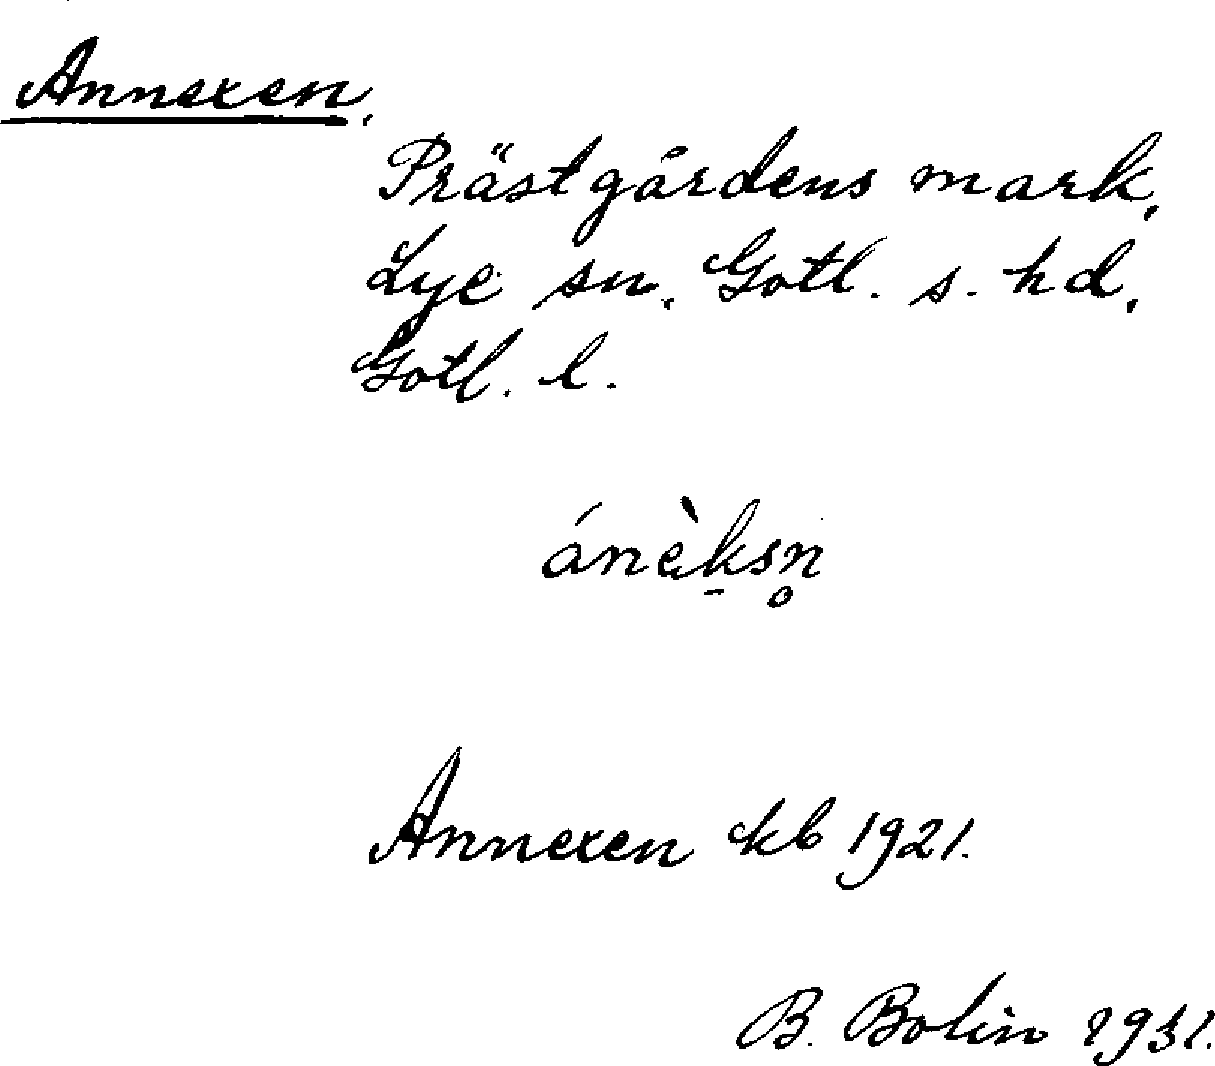 Annexen.
Prästgårdens mark,
Lye sn, Gotl. s. hd,
Gotl. l.
ánèk̠sn̥
Annexen kb 1921.
B. Bolin 1931.